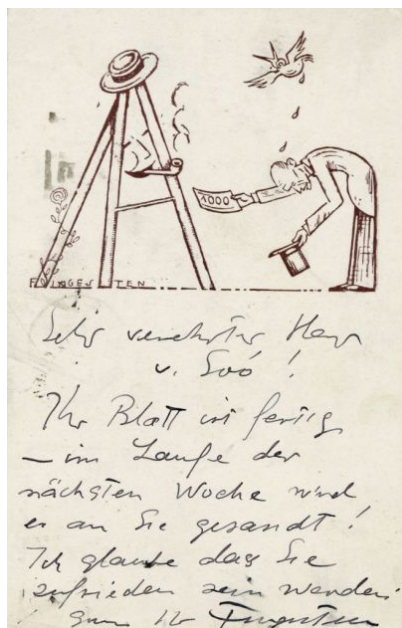 1000
F. INGES TEN
Sehr verehrter Herr
v. Soó!
Ihr Blatt ist fertig
– im Laufe der
nächsten Woche wird
es an Sie gesandt!
Ich glaube das Sie
zufrieden sein werden!
Ihr Fingesten